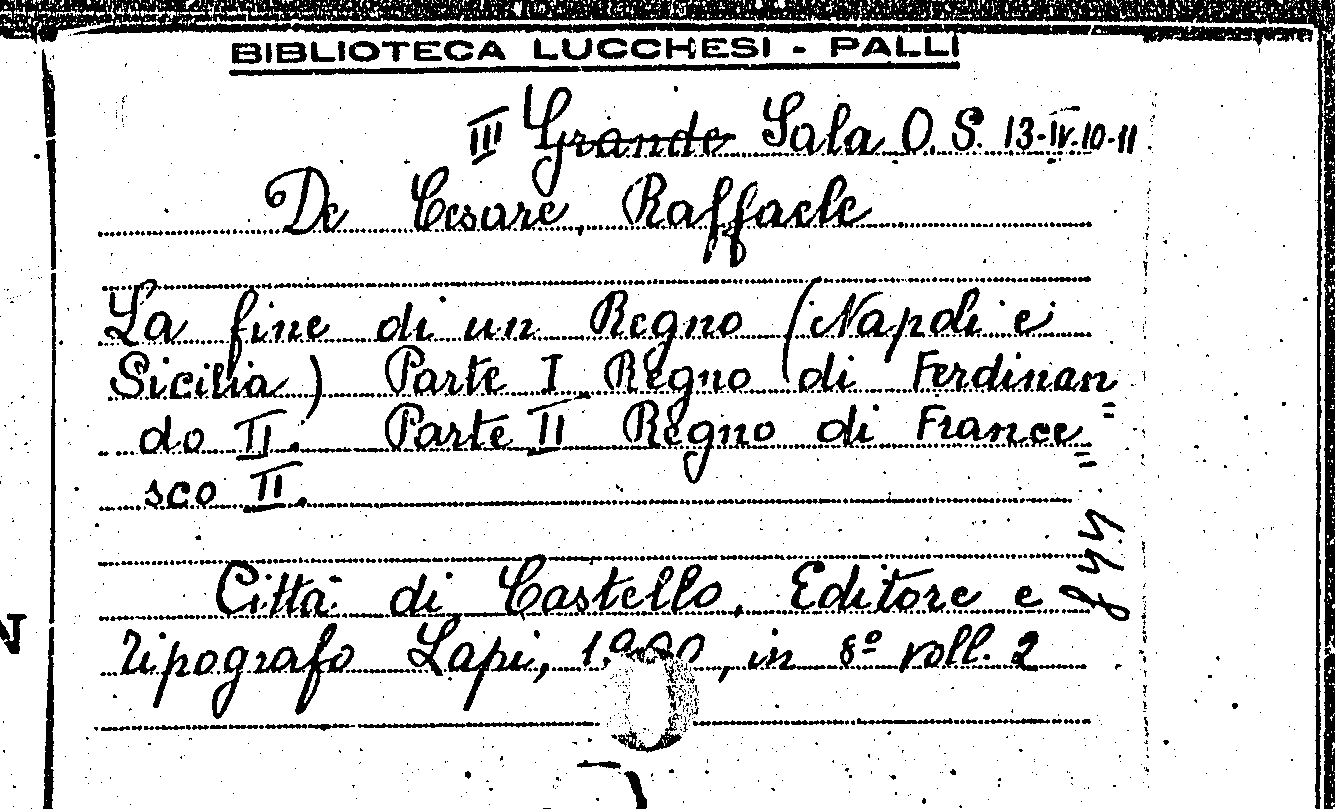 BIBLIOTECA LUCCHESI - PALLI
III Grande Sala O. S. 13-IV.10-11
De Cesare, Raffaele
La fine di un Regno (Napoli e
Sicilia) Parte I Regno di Ferdinan
do II. Parte II Regno di France
sco II.
Città di Castello, Editore e
Tipografo Lapi, 1900, in 8º voll. 2